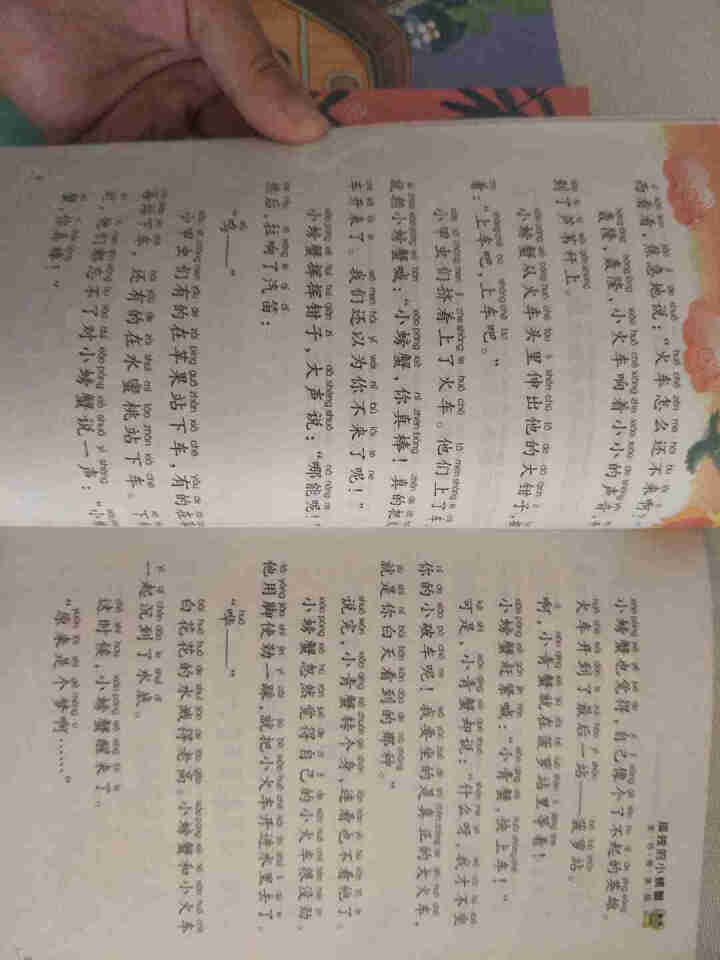 西看看，焦急地说：“火车怎么还不来啊？
轰隆，轰隆，小火车响着小小的声音，
到了芦苇秆上。
小螃蟹从火车头里伸出他的大钳子，
着：“上车吧，上车吧。”
小甲虫们挤着上了火车。他们上了车
就把小螃蟹喊：“小螃蟹，你真棒！真的把
车开来了。我们还以为你不来了呢！”
小螃蟹挥挥钳子，大声说：“哪能呢！
然后，拉响了汽笛：
“呜——”
小甲虫们有的在苹果站下车，有的在
莓站下车，还有的在水蜜桃站下车。下
时，他们都忘不了对小螃蟹说一声：“小
蟹，你真棒！”
的小螃蟹
小螃蟹也觉得，自己像个了不起的英雄。
火车开到了最后一站——菠萝站。
啊，小青蟹就在菠萝站里等着！
小螃蟹赶紧喊：“小青蟹，快上车！”
可是，小青蟹却说：“什么呀，我才不坐
你的小破车呢！我要坐的是真正的大火车，
就是你白天看到的那种。”
说完，小青蟹转个身，连看也不看他了。
小螃蟹忽然觉得自己的小火车很没劲。
他用脚使劲一踩，就把小火车开进水里去了。
“哗——”
白花花的水溅得老高。小螃蟹和小火车
一起沉到了水底。
这时候，小螃蟹醒来了。
“原来是个梦啊……”